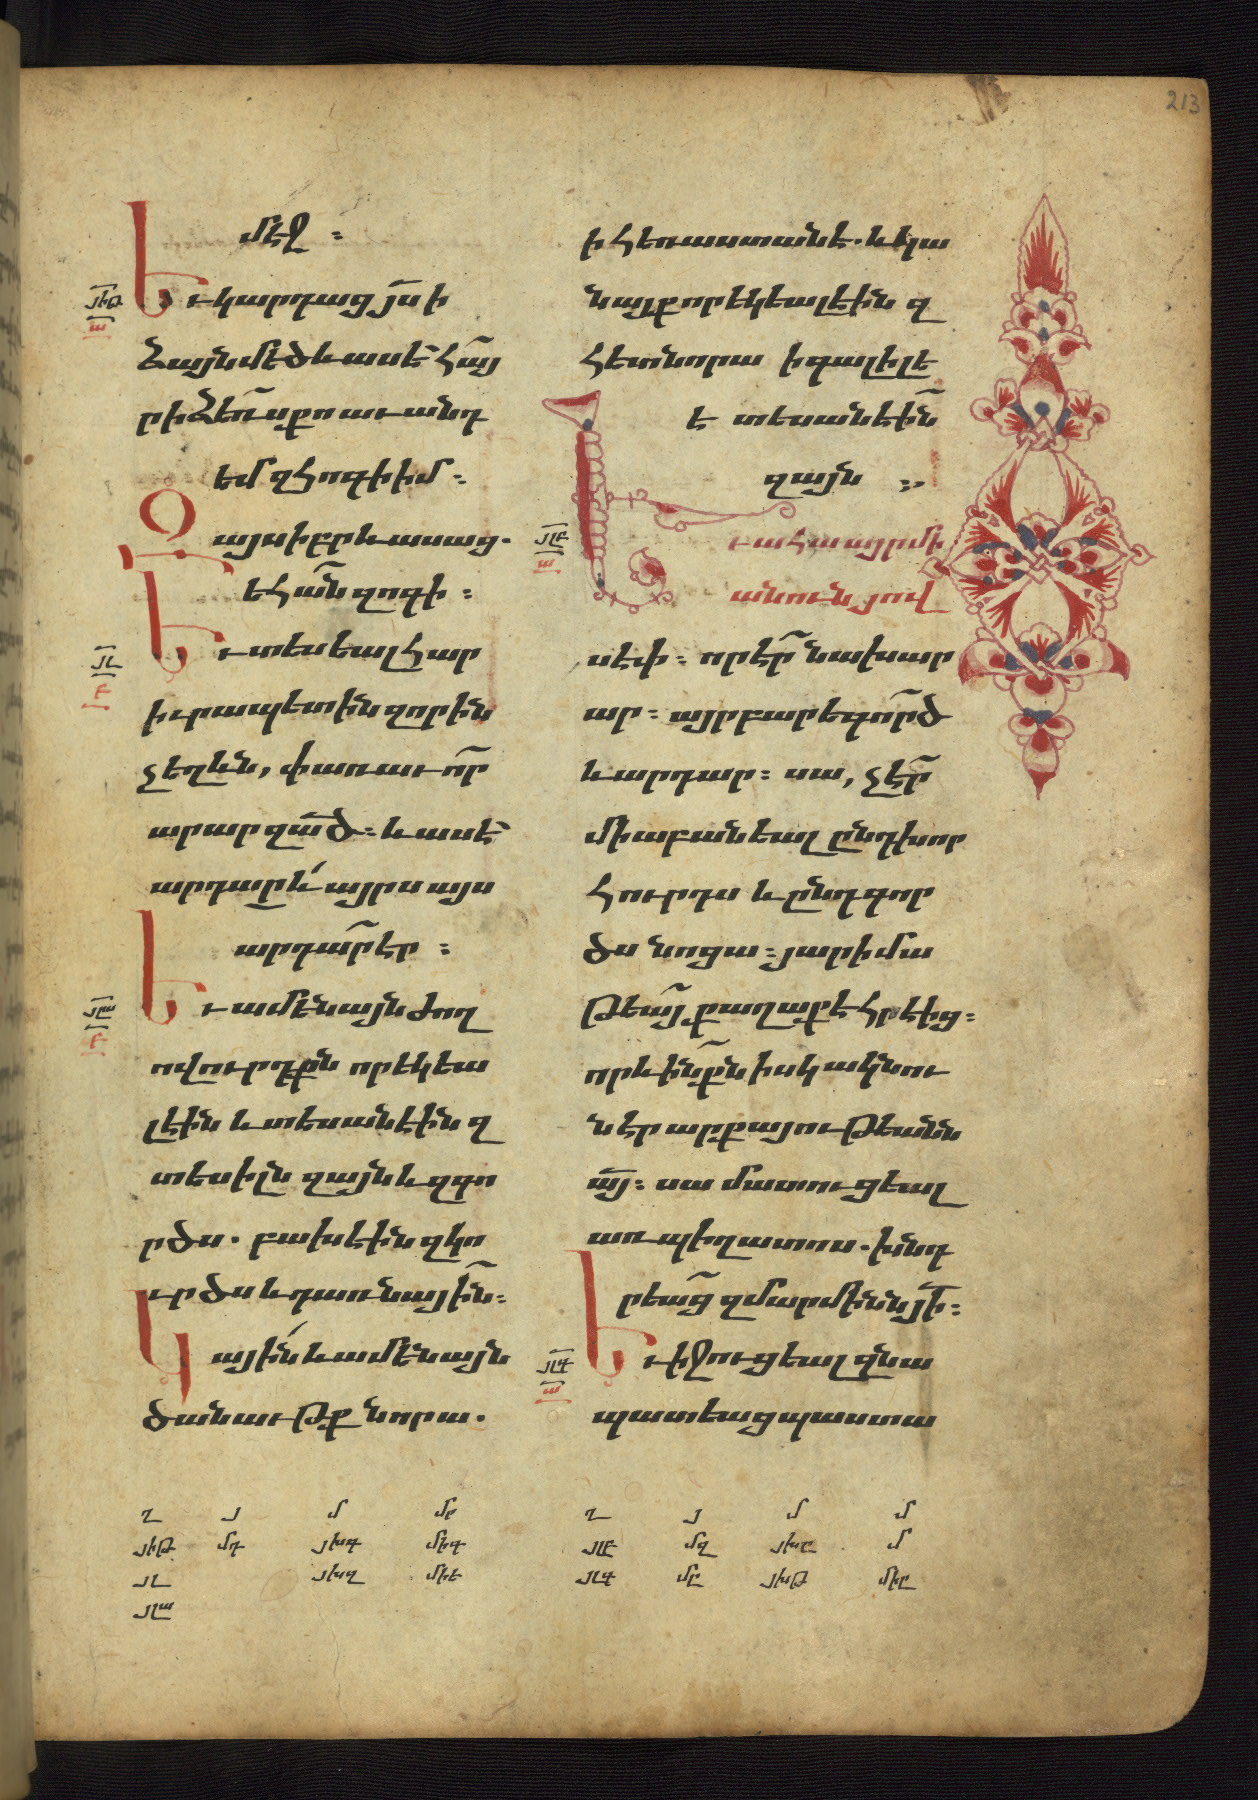 213
մէջ ։
Եւ կարդաց յս ի
ձայն մեծ և ասէ հայ
ր ի ձեռս քո աւանդ
եմ զհոգի իմ ։
Զայս իբրև ասաց.
եհան զոգի ։
Եւ տեսեալ հար
իւրապետին զորին
չ եղևն, փառաւոր
արար զած ։ և ասէ
արդարև այրս այս
արդար էր ։
Եւ ամենայն ժող
ովուրդքն որ եկեա
լ էին և տեսանէին զ
տեսիլն զայն և զգո
րծս . բախէին զկո
ւրծս և դառնային ։
Կային և ամենայն
ծանաւթք նորա .
ի հեռաստանէ . և կա
նայք որ եկեալ էին զ
հետ նորա ի գալիլե
է տեսանէին
զայն ։
Եւ ահա այր մի
անուն յով
սէփ ։ որ էր նախար
ար ։ այր բարեգործ
և արդար ։ սա, չէր
միաբանեալ ընդ խոր
հուրդս և ընդ գոր
ծս նոցա ։ յարիմա
թեայ քաղաքէ հրէից ։
որ և ինքն իսկ ակնու
նէր արքայութեանն
այ ։ սա մատուցեալ
առ պիղատոս . խնդ
րեաց զմարմինն յի ։
Եւ իջուցեալ զնա
պատեաց պաստա
յիթ
ա
յլ
բ
յլա
բ
յլբ
ա
յլգ
ա
ղ յ մ մր
յիթ մդ յխգ միգ
յլ յխզ միե
յլա
ղ յ մ մ
յլբ մզ յխը մ
յլգ մը յխթ միը